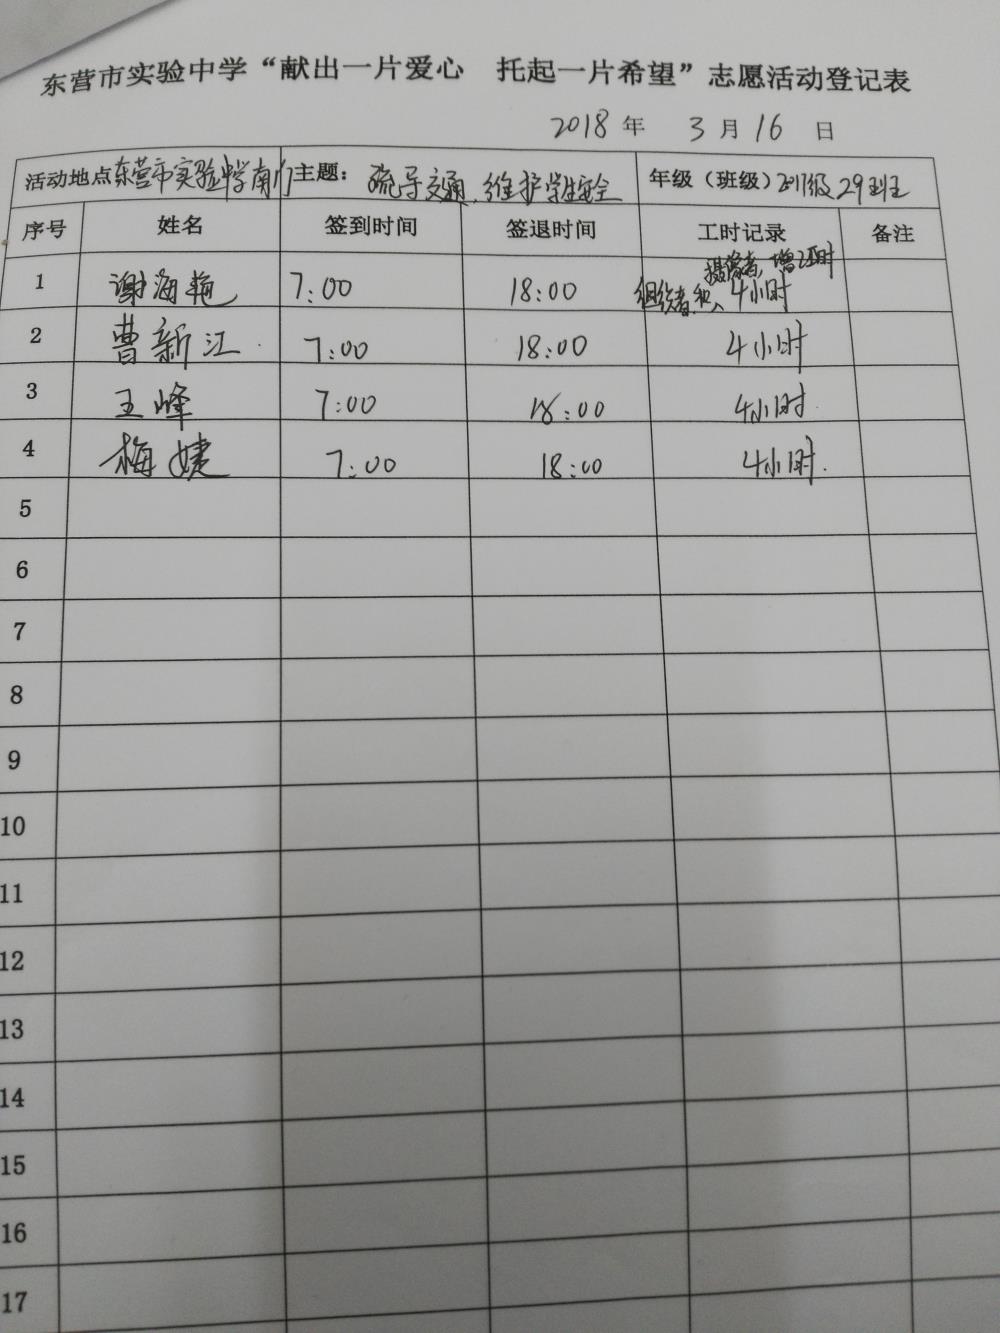 东营市实验中学“献出一片爱心 托起一片希望”志愿活动登记表
2018 年 3 月 16 日
活动地点 东营市实验中学南门 主题： 疏导交通、维护学生安全 年级（班级）2017级29班
序号 姓名 签到时间 签退时间 工时记录 备注
摄像者，增2小时
1 谢海艳 7:00 18:00 组织者 4小时
2 曹新江 7:00 18:00 4小时
3 王峰 7:00 18:00 4小时
4 梅婕 7:00 18:00 4小时.
5
6
7
8
9
10
11
12
13
14
15
16
17